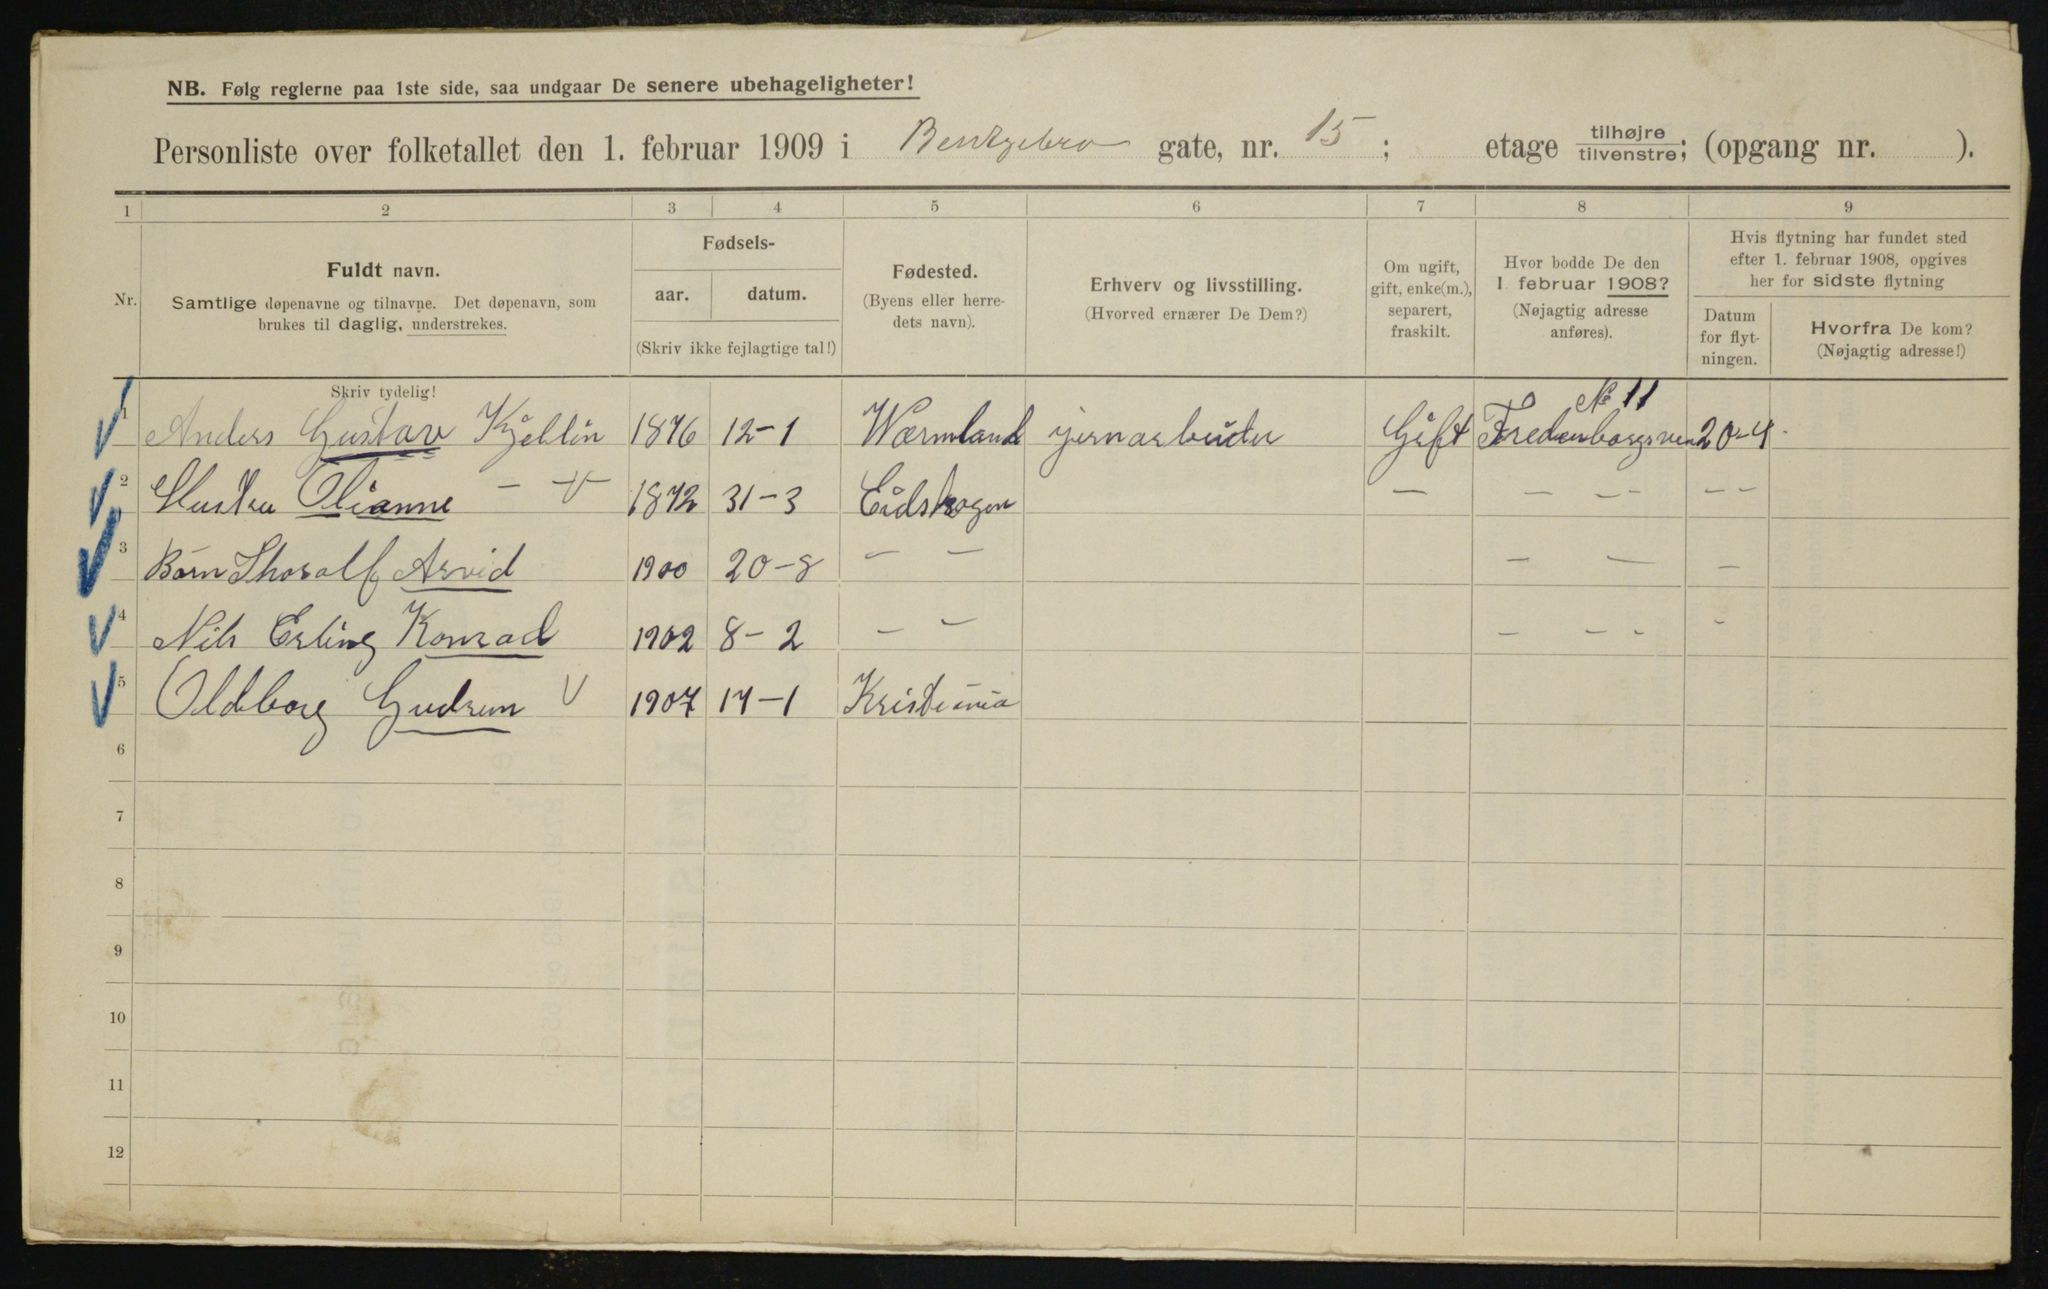 NB. Følg reglerne paa 1ste side, saa undgaar De senere ubehageligheter!
Personliste over folketallet den 1. februar 1909 i Bentzebro gate, nr. 15; etage tilhøjre/tilvenstre; (opgang nr. ).
1 2 3 4 5 6 7 8 9
Nr.
Fuldt navn.
Samtlige døpenavne og tilnavne. Det døpenavn, som
brukes til daglig, understrekes.
Fødsels-
aar. datum.
(Skriv ikke fejlagtige tal!)
Fødested.
(Byens eller herre-
dets navn).
Erhverv og livsstilling.
(Hvorved ernærer De Dem?)
Om ugift,
gift, enke(m.),
separert,
fraskilt.
Hvor bodde De den
1. februar 1908?
(Nøjagtig adresse
anføres).
Hvis flytning har fundet sted
efter 1. februar 1908, opgives
her for sidste flytning
Datum
for flyt-
ningen.
Hvorfra De kom?
(Nøjagtig adresse!)
Skriv tydelig!
No 11
1 Anders Gustav Kjellin 1876 12-1 Wærmland jernarbeider Gift Fredensborgsveien 20-4
2 Hustru Olianne — — 1872 31-3 Eidskogen — — — — — —
3 Børn Thoralf Arvid 1900 20-8 — — — — —
4 Nils Erling Konrad 1902 8-2 — — — — - -
5 Oldborg Gudrun 1907 17-1 Kristiania
6
7
8
9
10
11
12